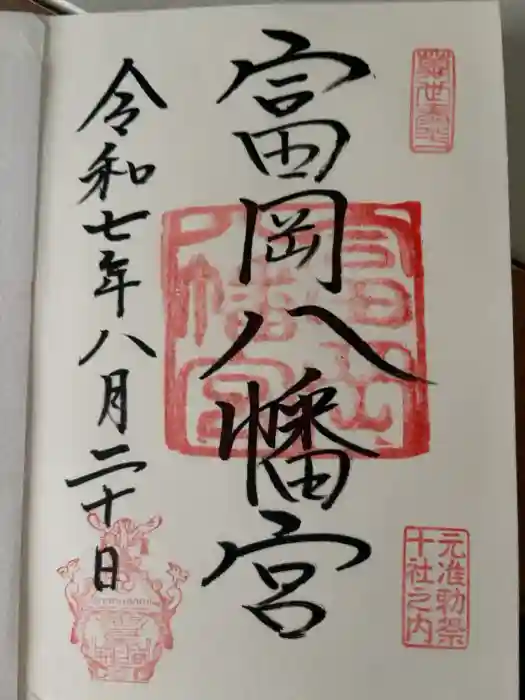 富岡八幡宮
令和七年八月二十日
元准勅祭
十社之内